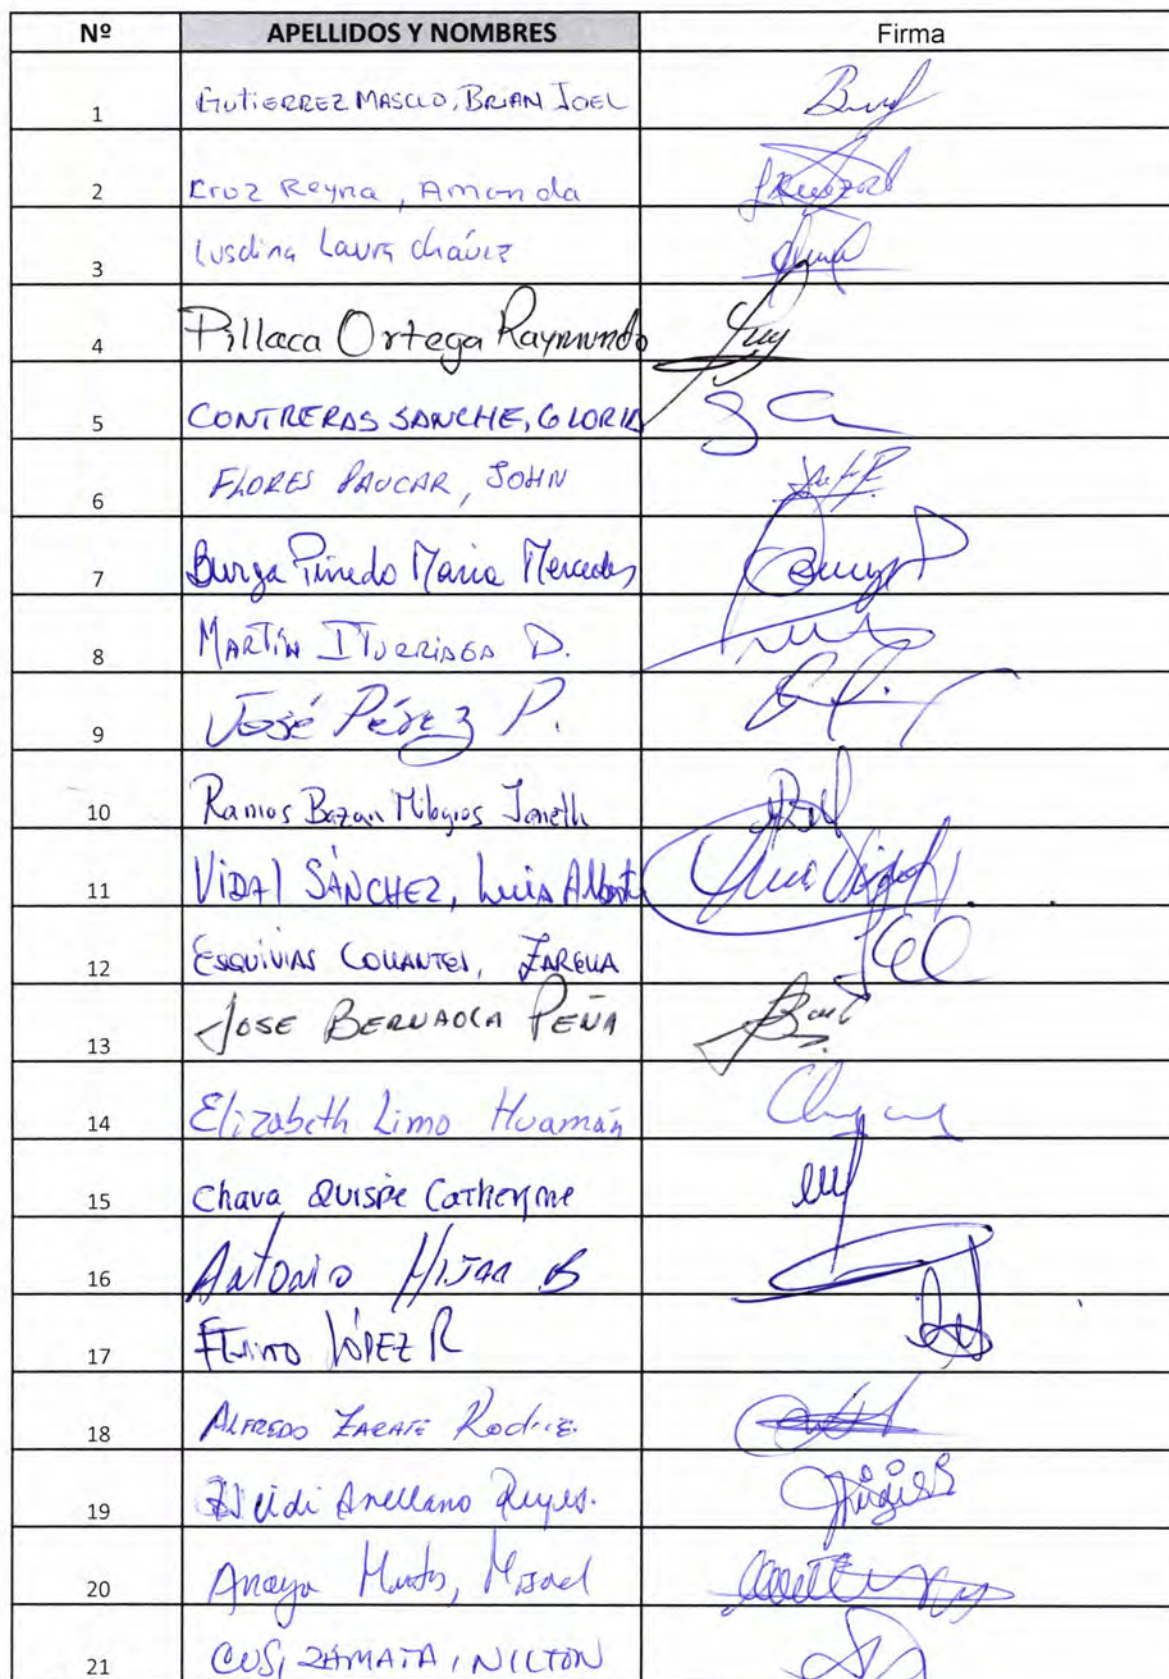 Nº APELLIDOS Y NOMBRES Firma
1 GUTIERREZ MASCCO, BRIAN JOEL
2 Cruz Reyna, Amanda
3 Lusdina Laura Chávez
4 Pillaca Ortega Raymundo
5 CONTRERAS SANCHE, GLORIA
6 FLORES PAUCAR, JOHN
7 Burga Pinedo Maria Mercedes
8 MARTÍN ITURRIAGA D.
9 José Pérez P.
10 Ramos Bazan Milagros Janeth
11 VIDAL SÁNCHEZ, Luis Alberto
12 ESQUIVIAS COLLANTES, ZARELLA
13 JOSE BERNAOLA PEÑA
14 Elizabeth Limo Huamán
15 Chava Quispe Catheryne
16 Antonio HIJAR B
17 LÓPEZ R
18 ALFREDO ZARATE
19 Heidi Arellano Reyes.
20 Anaya Misael
21 CUSI ZAMATA, NILTON